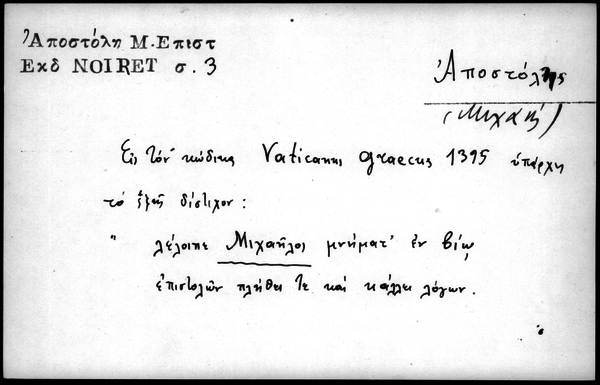 Ἀποστόλη Μ. Επιστ
Εκδ NOIRET σ. 3
Ἀποστόλης
(Μιχαὴλ)
Εἰς τὸν κώδικα Vaticanus graecus 1395 ὑπάρχει
τὸ ἑξῆς δίστιχον:
" λέλοιπε Μιχαῆλος μνήματ' ἐν βίῳ
ἐπιστολῶν πλήθει τε καὶ κάλλει λόγων.